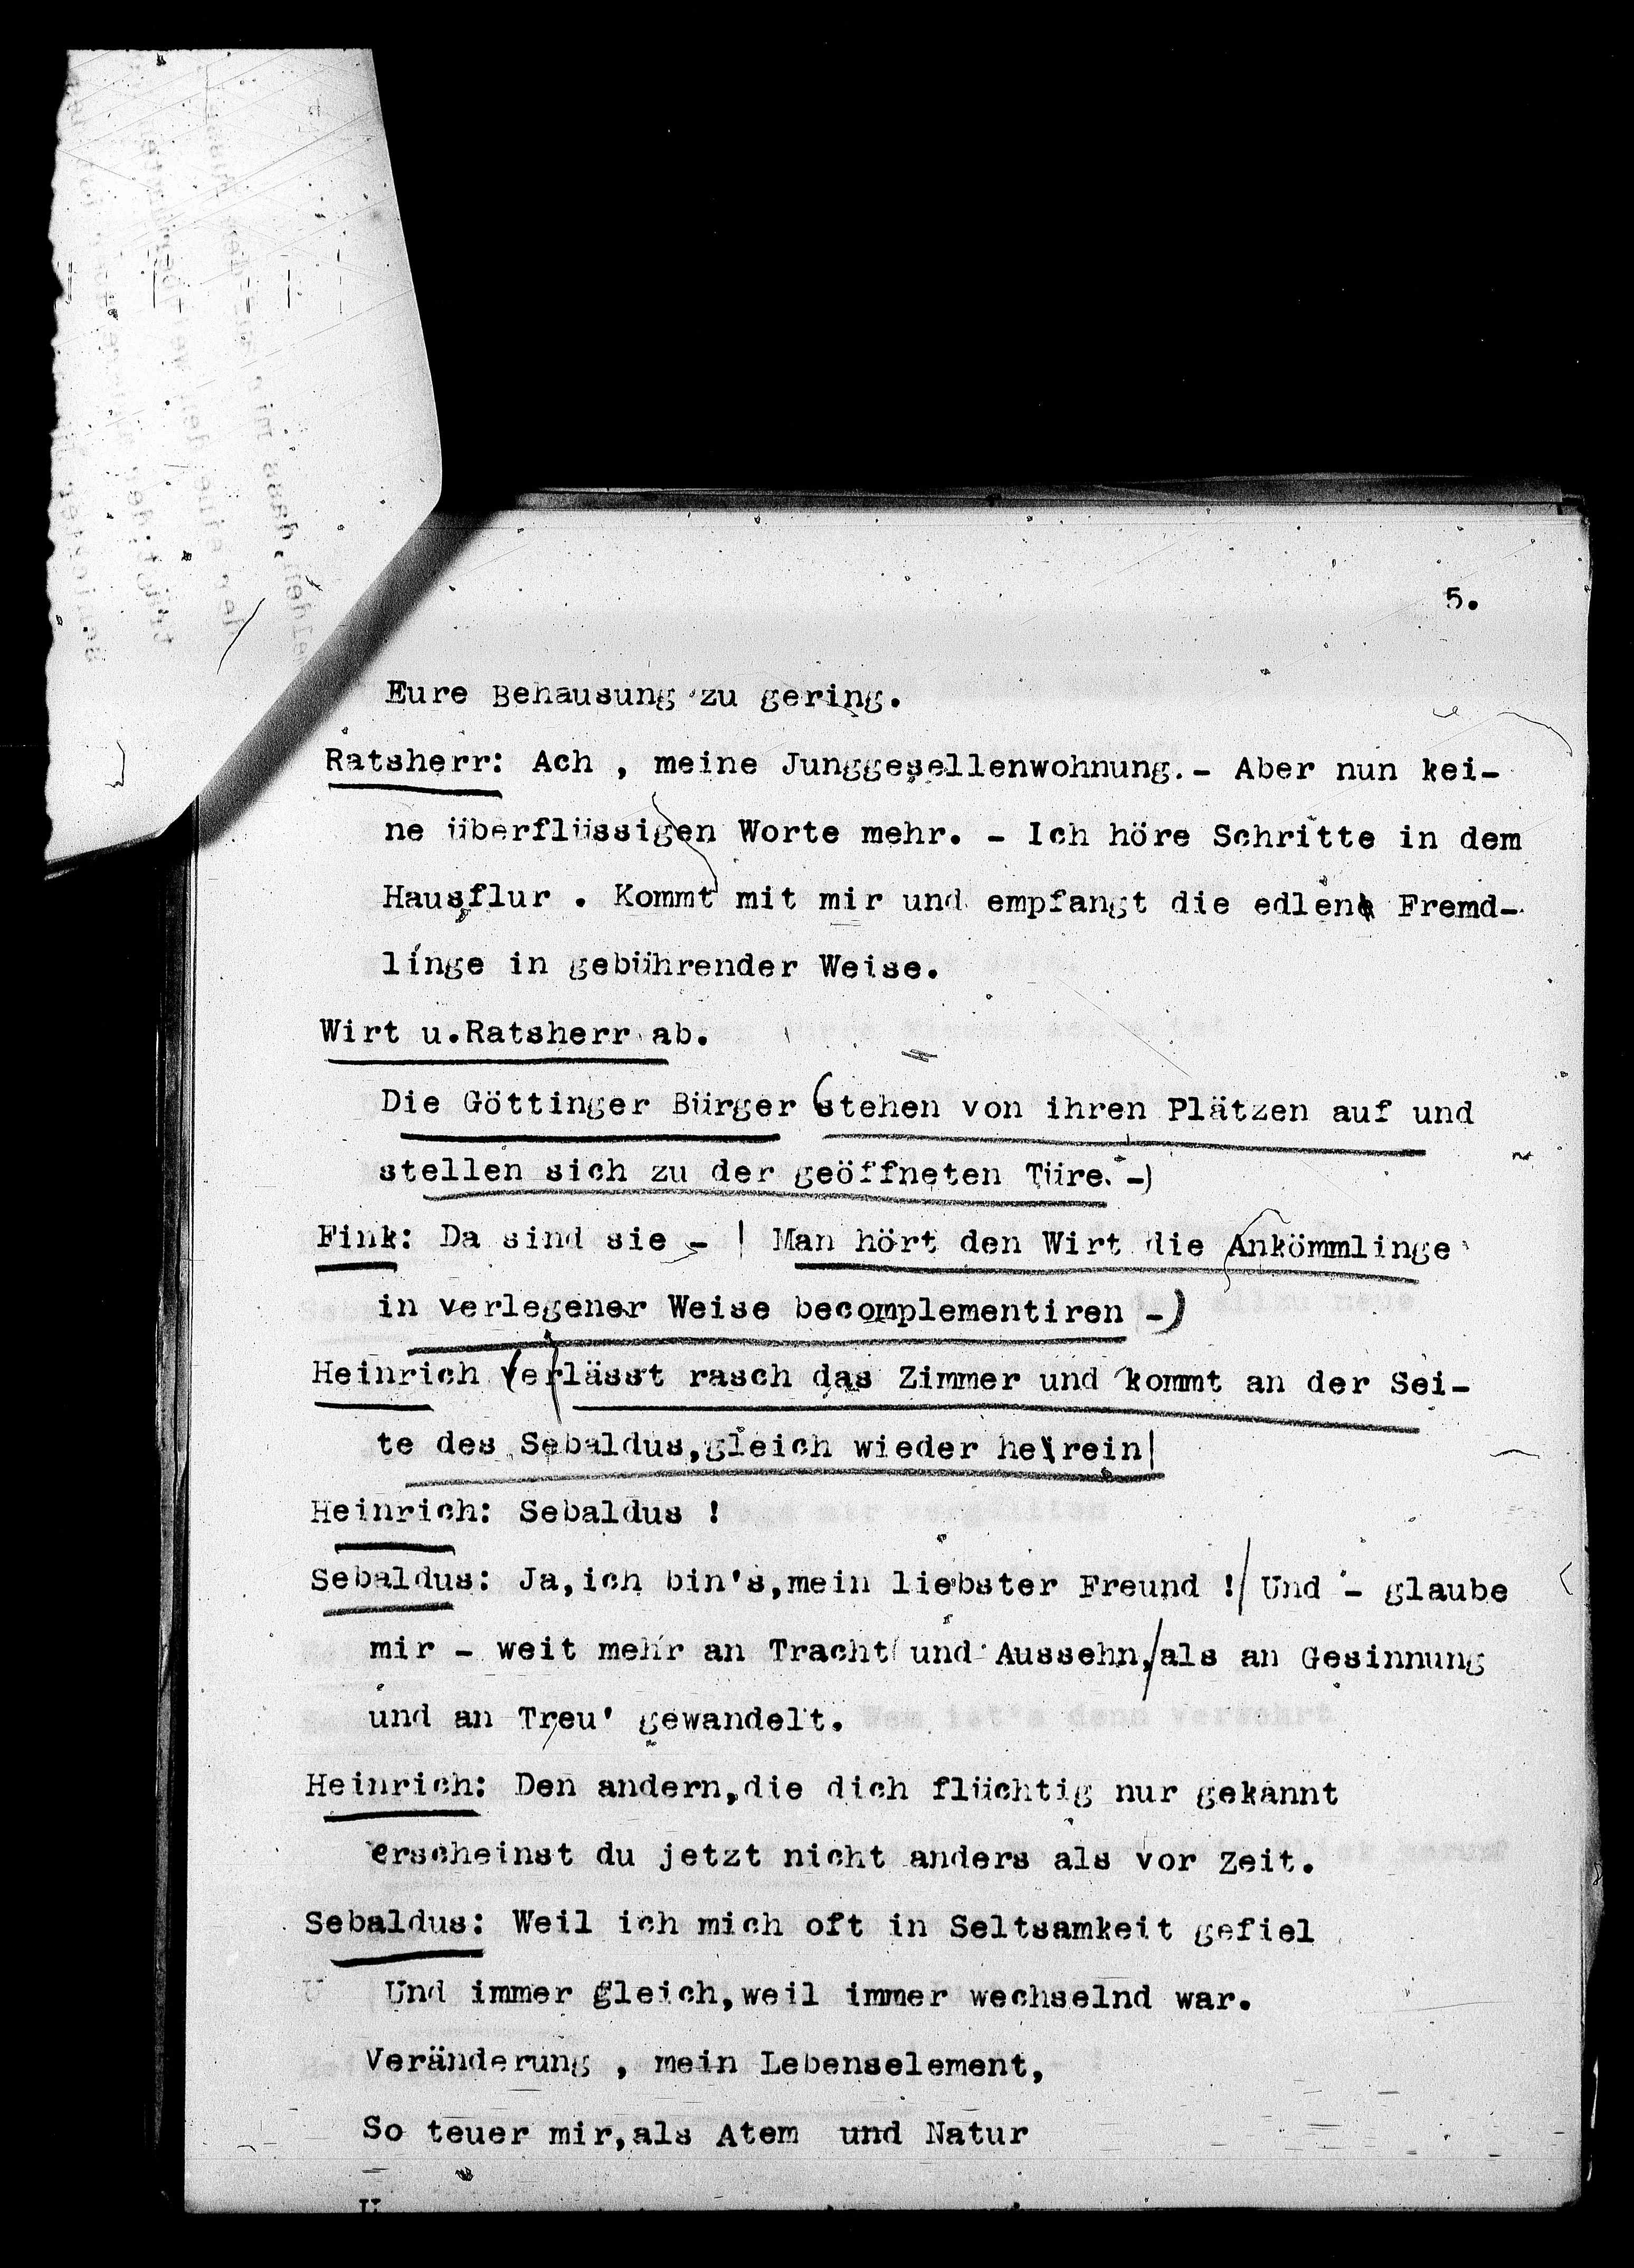 5.
Eure Behausung zu gering.
Ratsherr: Ach , meine Junggesellenwohnung.- Aber nun kei-
ne überflüssigen Worte mehr. - Ich höre Schritte in dem
Hausflur . Kommt mit mir und empfangt die edlen Fremd-
linge in gebührender Weise.
Wirt u.Ratsherr ab.
Die Göttinger Bürger (stehen von ihren Plätzen auf und
stellen sich zu der geöffneten Türe.-)
Fink: Da sind sie - ! Man hört den Wirt die Ankömmlinge
in verlegener Weise becomplementiren -)
Heinrich (verlässt rasch das Zimmer und kommt an der Sei-
te des Sebaldus,gleich wieder herein)
Heinrich: Sebaldus !
Sebaldus: Ja,ich bin's,mein liebster Freund !/ Und - glaube
mir - weit mehr an Tracht und Aussehn,/als an Gesinnung
und an Treu' gewandelt.
Heinrich: Den andern,die dich flüchtig nur gekannt
erscheinst du jetzt nicht anders als vor Zeit.
Sebaldus: Weil ich mich oft in Seltsamkeit gefiel
Und immer gleich,weil immer wechselnd war.
Veränderung , mein Lebenselement,
So teuer mir,als Atem und Natur